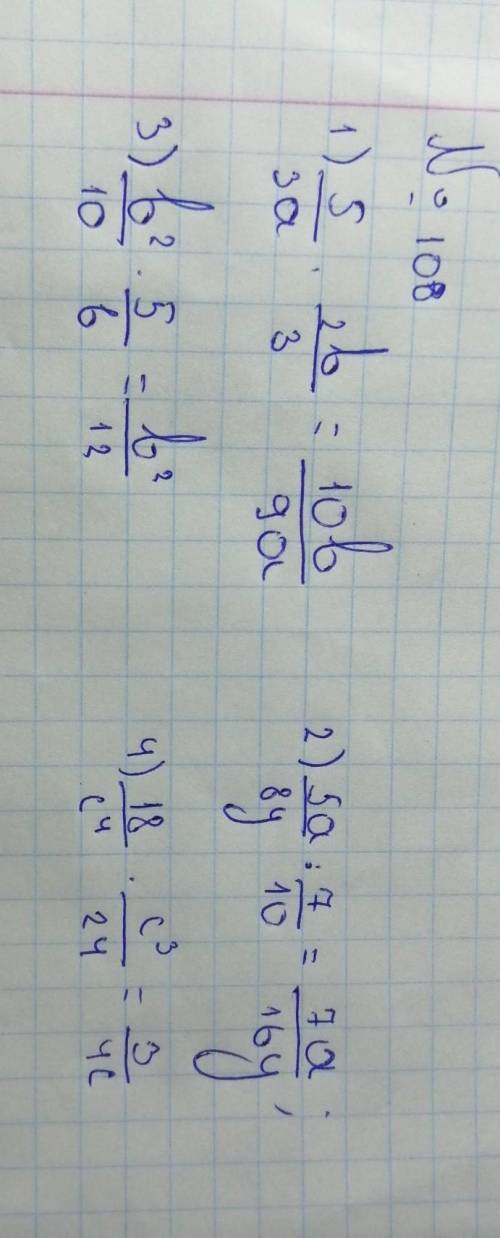 № 108
1) 5/3a · 2b/3 = 10b/9a
2) 5a/8y : 7/10 = 7a/16y;
3) b²/10 · 5/6 = b²/12
4) 18/c⁴ · c³/24 = 3/4c